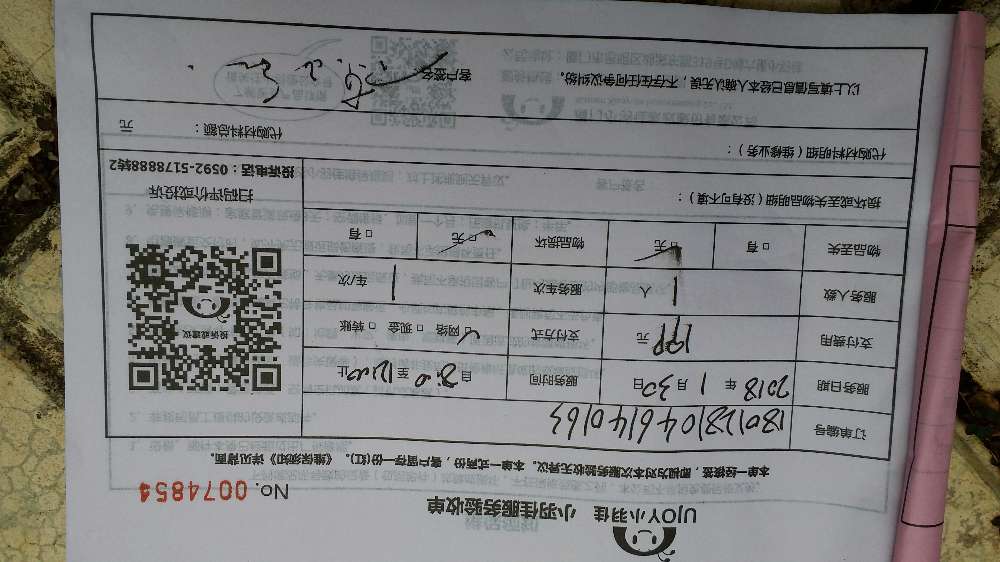 UJOY小羽佳 小羽佳服务验收单
No. 0074854
本单一经续签，即视为对本次服务验收无异议。本单一式两份，客户留存一份(红)。《维保须知》详见背面。
订单编号 180128104614016
服务日期 2018 年 1 月 30 日 服务时间 自 8:00 至 12:00 止
支付费用 199 元 支付方式 网络 现金 转账
服务人数 1 人 服务车次 1 车/次
物品丢失 有 无 物品损坏 无 有
投诉或建议
扫码评价或投诉
投诉电话：0592-5178888转2
损坏或丢失物品明细（没有可不填）：
代购材料明细（维修业务）：
代购材料总额： 元
以上填写信息已经本人确认无误，不存在任何争议纠纷。
客户签名